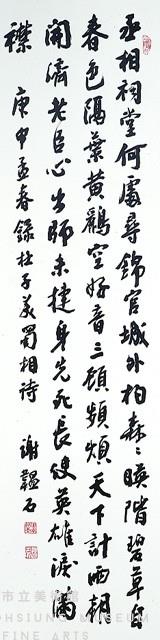 丞相祠堂何處尋錦官城外柏森〻暎階碧草自
春色隔葉黃鸝空好音三顧頻煩天下計兩朝
開濟老臣心出師未捷身先死長使英雄淚滿
襟　庚申孟春錄杜子美蜀相詩　謝韞石
市立美術館
OHSIUNG MUSEUM
FINE ARTS